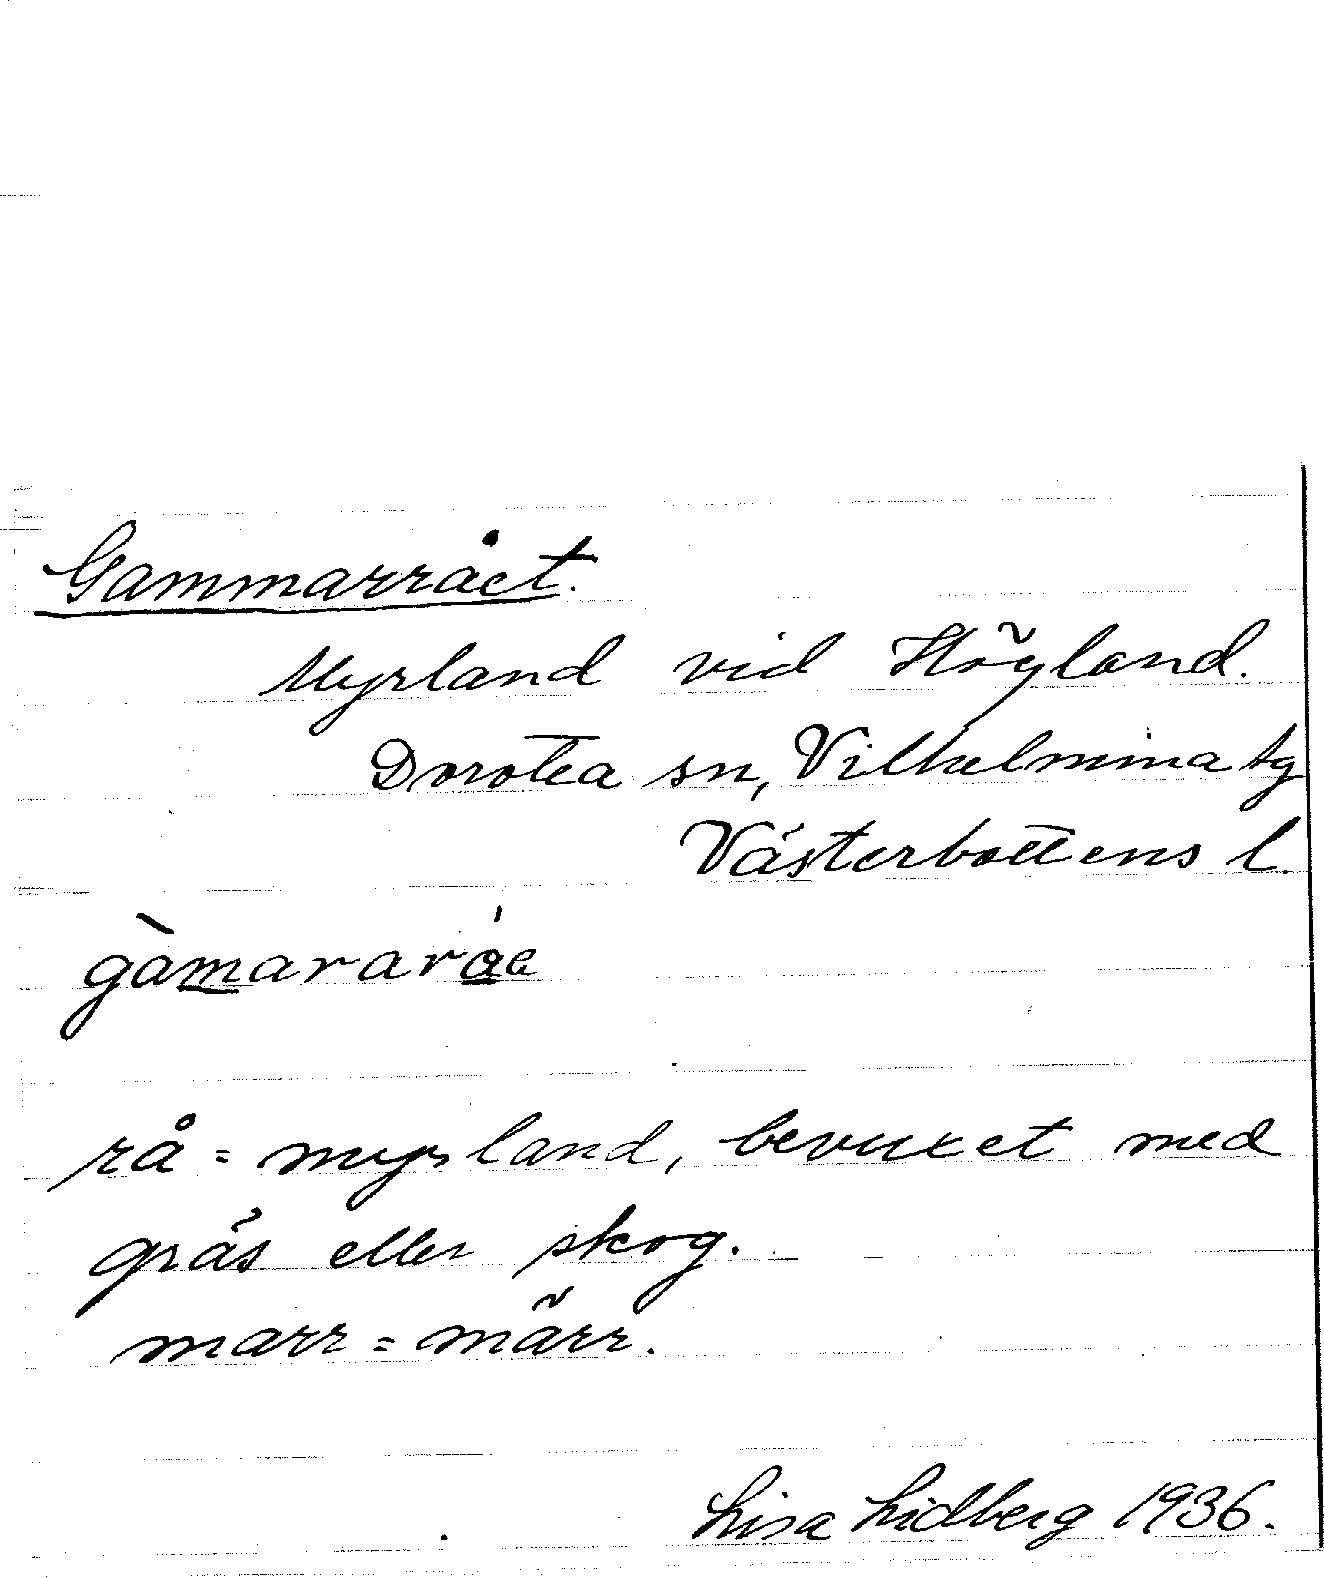 Gammarrået.
Myrland vid Högland.
Dorotea sn, Vilhelmina tg
Västerbottens l.
gàmararáe
rå = myrland, bevuxet med
gräs eller skog.
marr = märr.
Lisa Lidberg 1936.